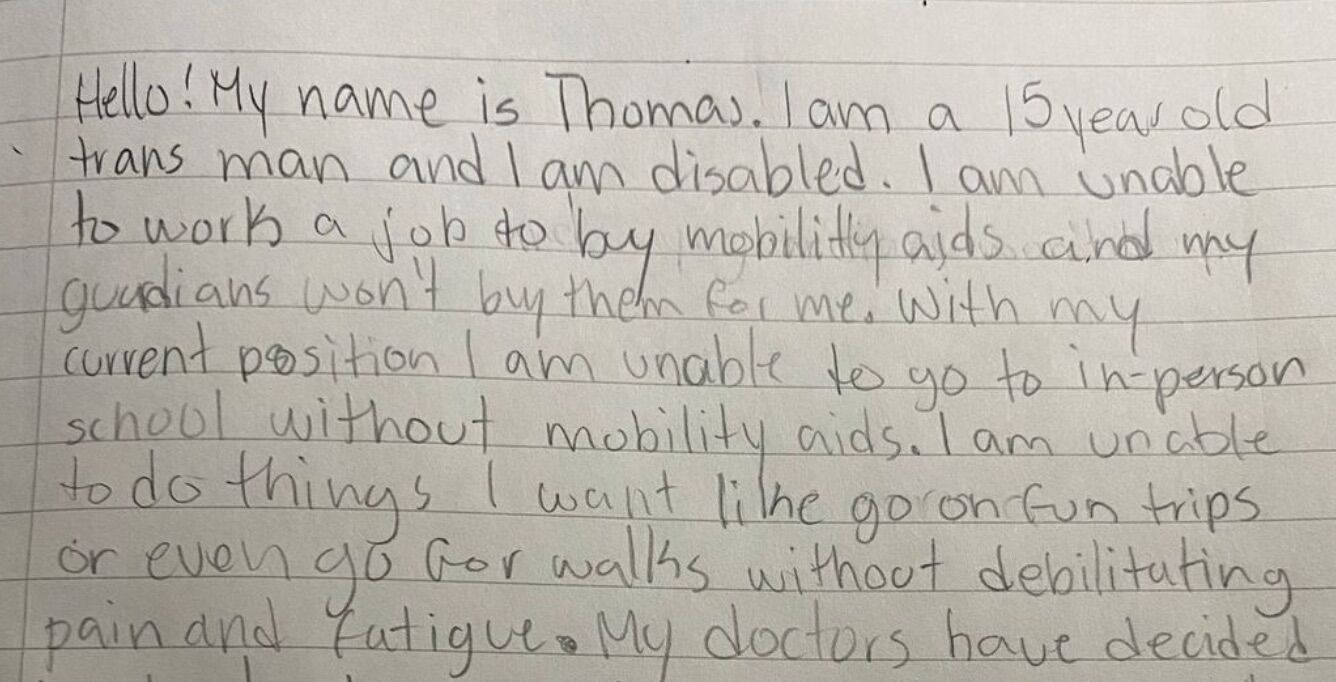 Hello! My name is Thomas. I am a 15 year old
trans man and I am disabled. I am unable
to work a job to buy mobility aids and my
guadians won't buy them for me. With my
current position I am unable to go to in-person
school without mobility aids. I am unable
to do things I want like go on fun trips
or even go for walks without debilitating
pain and fatigue. My doctors have decided